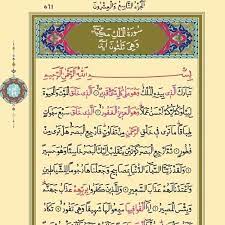 الجزء التاسع والعشرون
٥٦١
سورة الملك مكية
وهي ثلثون آية
بسم الله الرحمن الرحيم
تبارك الذي بيده الملك وهو على كل شيء قدير الذي خلق
الموت والحيوة ليبلوكم ايكم احسن عملا وهو العزيز الغفور الذي خلق سبع سموات
طباقا ما ترى في خلق الرحمن من تفاوت فارجع البصر هل ترى من
فطور ثم ارجع البصر كرتين ينقلب اليك البصر خاسئا وهو حسير
ولقد زينا السماء الدنيا بمصابيح وجعلناها رجوما للشياطين
واعتدنا لهم عذاب السعير وللذين كفروا بربهم عذاب جهنم
وبئس المصير اذا القوا فيها سمعوا لها شهيقا وهي تفور